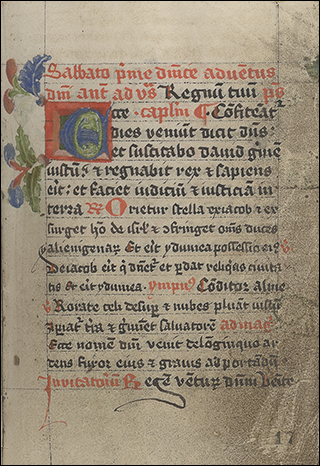 Sabbato p̄rie dm̄ce aduentus
dm̄ ant̄ ad vs̄ Regnū tuū ps̄
Ecce · caplm̄ ¶ Cōfiteāt
dies veniūt dicit dn̄s:
et suscitabo dauid gmē
iustū: & regnabit rex & sapiens
eit: et faciet iudiciū & iusticiā in
terra R Orietur stella ex iacob & ex
surget hō de isrl & ꝯfringet om̄s duces
alienigenaꝝ Et eit ydumea possessio eiꝰ
De iacob eit q̇ dn̄et & pdat reliqas ciuita
tis & eit ydumea. ympnꝰ Cōditor alme
Rorate celi desup & nubes pluāt iustū
apiat̄ tr̄a & gm̄et saluatorē ad mag
Ecce nomen dn̄i venit de lōginquo ar
dens furor eius & grauis ad portādū
Inuitatoriū Regē ventuꝝ dn̄m venite
17